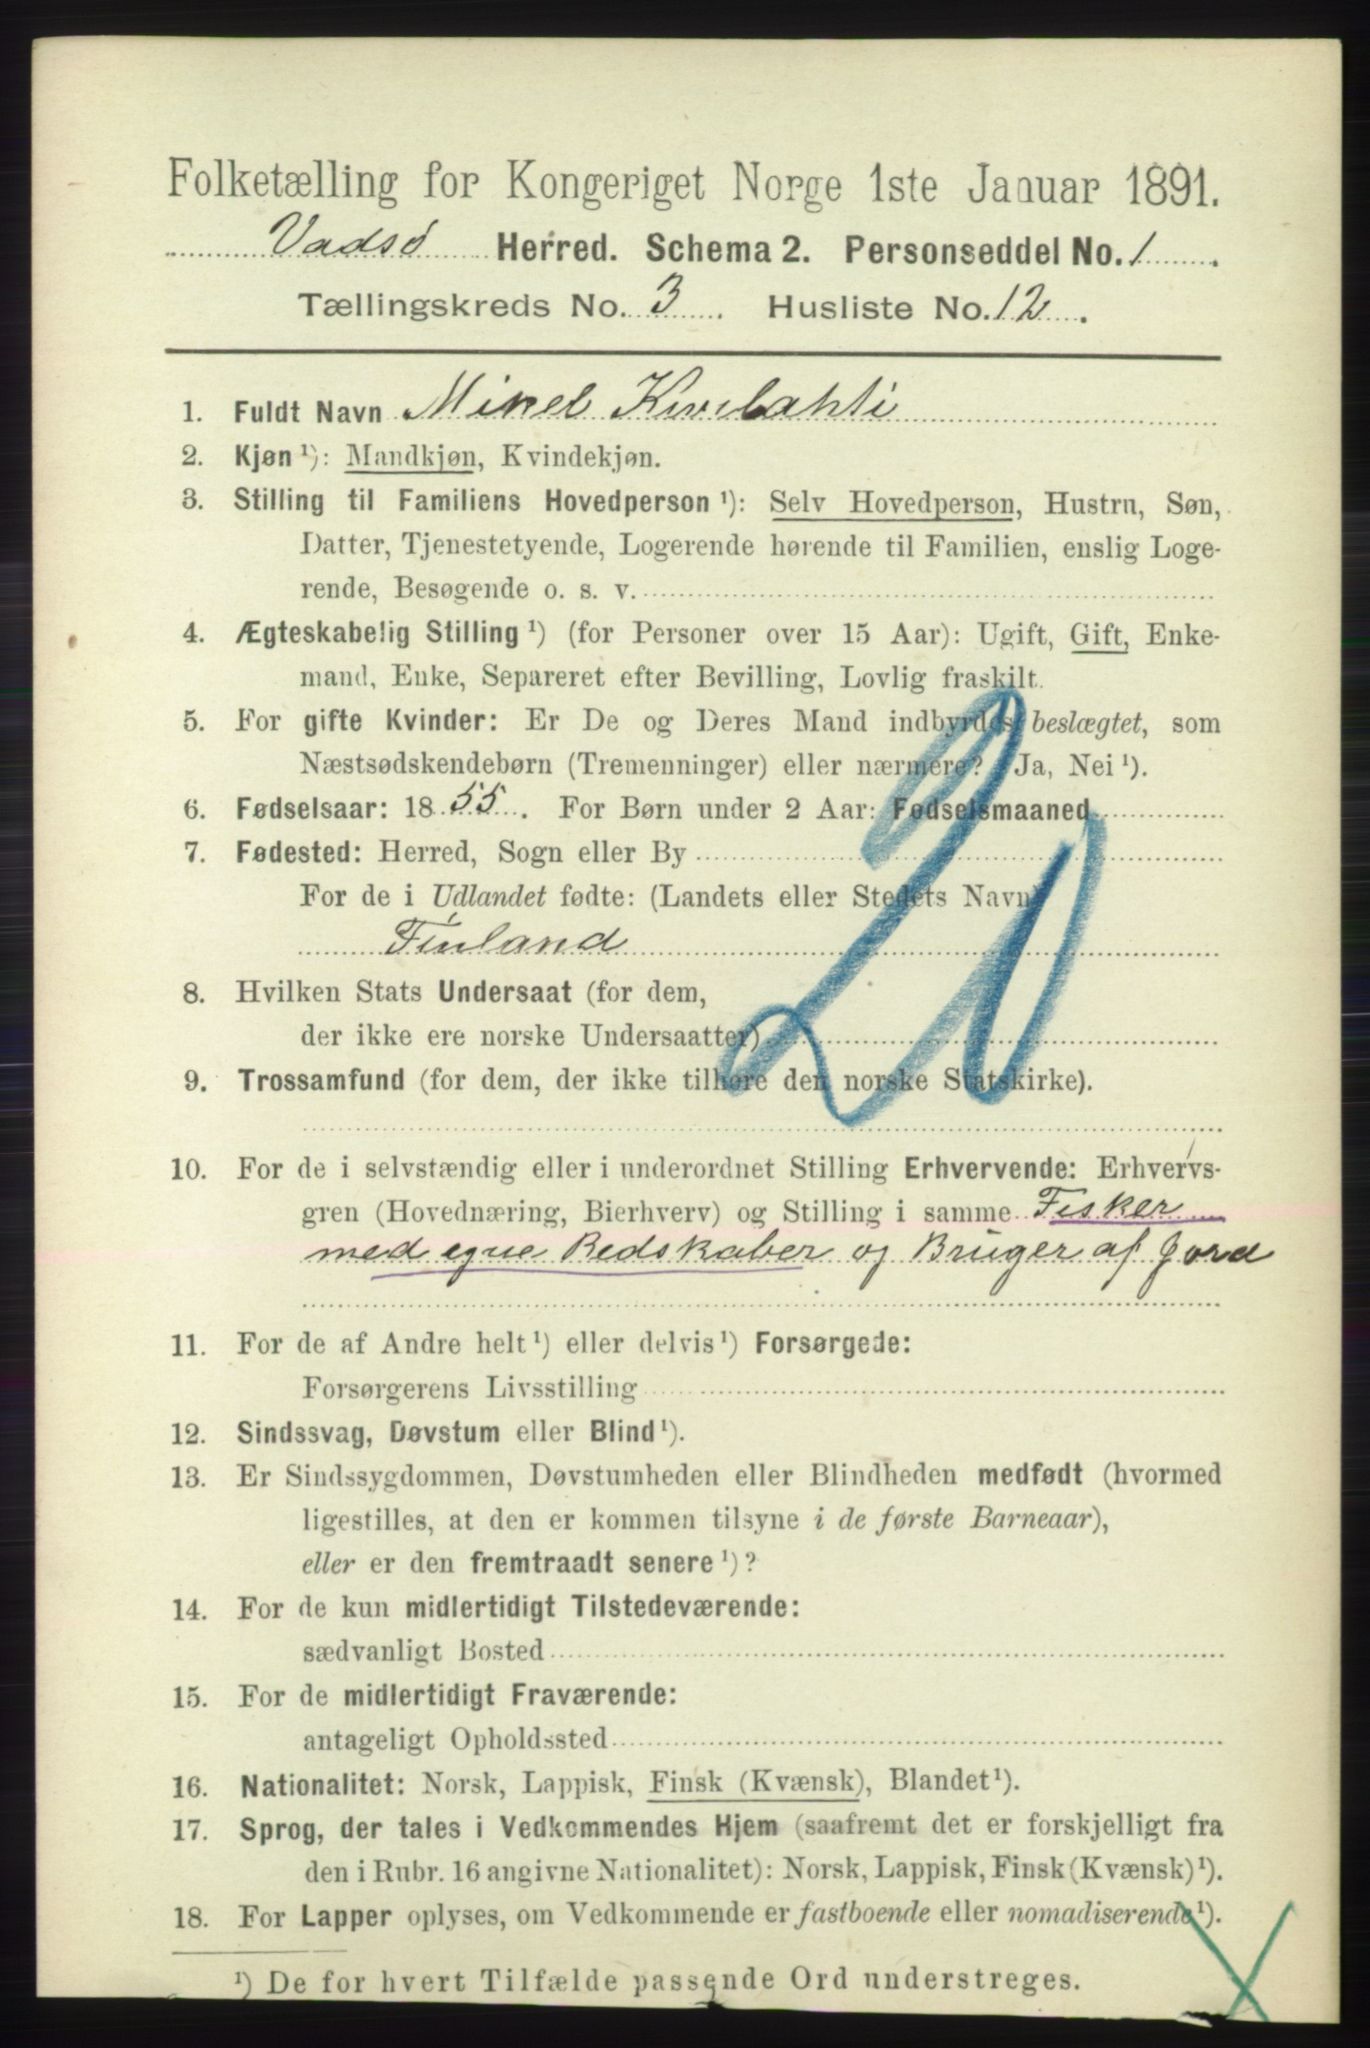 Folketælling for Kongeriget Norge 1ste Januar 1891.
Vadsø Herred. Schema 2. Personseddel No. 1.
Tællingskreds No. 3. Husliste No. 12.
1. Fuldt Navn Mikel Kivilahti
2. Kjøn ¹): Mandkjøn, Kvindekjøn.
3. Stilling til Familiens Hovedperson ¹): Selv Hovedperson, Hustru, Søn,
Datter, Tjenestetyende, Logerende hørende til Familien, enslig Loge-
rende, Besøgende o. s. v.
4. Ægteskabelig Stilling ¹) (for Personer over 15 Aar): Ugift, Gift, Enke-
mand, Enke, Separeret efter Bevilling, Lovlig fraskilt.
5. For gifte Kvinder: Er De og Deres Mand indbyrdes beslægtet, som
Næstsødskendebørn (Tremenninger) eller nærmere? Ja, Nei ¹).
6. Fødselsaar: 1855. For Børn under 2 Aar: Fødselsmaaned
7. Fødested: Herred, Sogn eller By
For de i Udlandet fødte: (Landets eller Stedets Navn)
Finland
20
8. Hvilken Stats Undersaat (for dem,
der ikke ere norske Undersaatter)
9. Trossamfund (for dem, der ikke tilhøre den norske Statskirke).
10. For de i selvstændig eller i underordnet Stilling Erhvervende: Erhvervs-
gren (Hovednæring, Bierhverv) og Stilling i samme Fisker
med egne Redskaber og Bruger af Jord
11. For de af Andre helt ¹) eller delvis ¹) Forsørgede:
Forsørgerens Livsstilling
12. Sindssvag, Døvstum eller Blind ¹).
13. Er Sindssygdommen, Døvstumheden eller Blindheden medfødt (hvormed
ligestilles, at den er kommen tilsyne i de første Barneaar),
eller er den fremtraadt senere ¹)?
14. For de kun midlertidigt Tilstedeværende:
sædvanligt Bosted
15. For de midlertidigt Fraværende:
antageligt Opholdssted
16. Nationalitet: Norsk, Lappisk, Finsk (Kvænsk), Blandet ¹).
17. Sprog, der tales i Vedkommendes Hjem (saafremt det er forskjelligt fra
den i Rubr. 16 angivne Nationalitet): Norsk, Lappisk, Finsk (Kvænsk) ¹).
18. For Lapper oplyses, om Vedkommende er fastboende eller nomadiserende ¹).
¹) De for hvert Tilfælde passende Ord understreges.